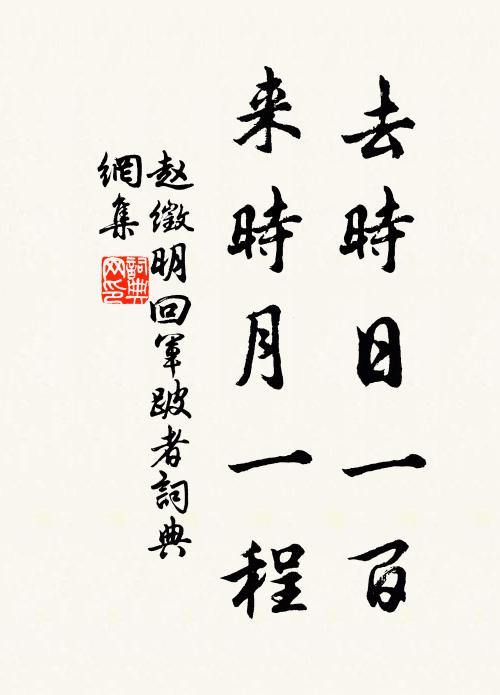 去時日一百
来時月一程
赵徵明回軍跛者詞典
網集
詞典
网印